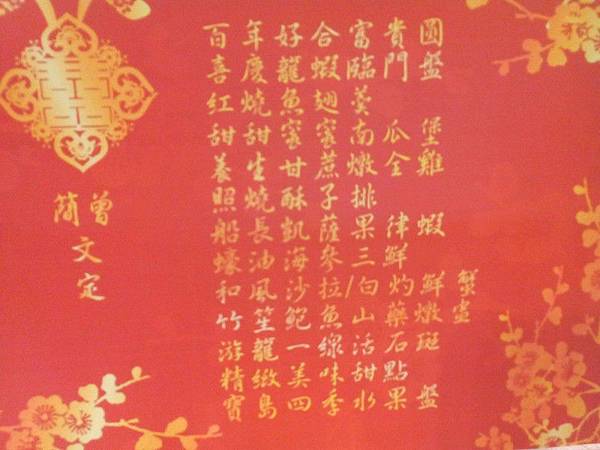 百年好合富貴圓
喜慶龍蝦臨門盤
紅燒魚翅羹
甜甜蜜蜜南瓜堡
養生甘蔗燉全雞
照燒酥子排
船長凱薩果律蝦
蠔油海參三鮮
和風沙拉/白灼鮮蟹
竹笙鮑魚山藥燉盅
游龍一線活石斑
精緻美味甜點
寶島四季水果盤
簡曾
文
定
囍